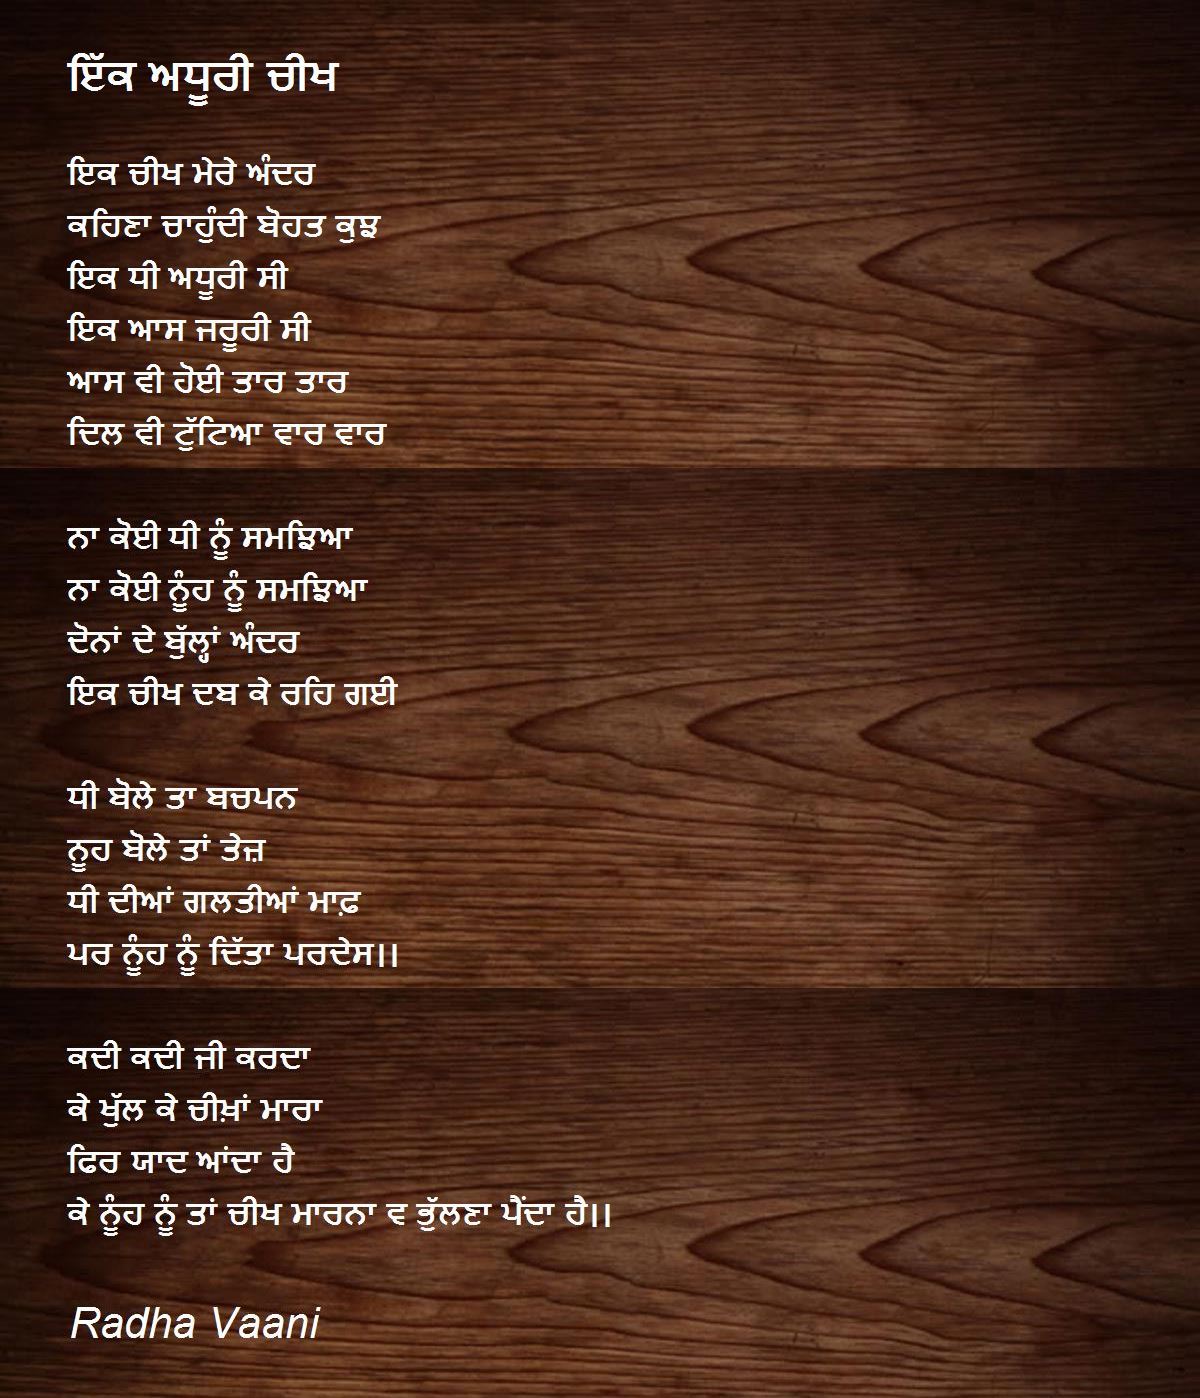 ਇੱਕ ਅਧੂਰੀ ਚੀਖ
ਇਕ ਚੀਖ ਮੇਰੇ ਅੰਦਰ
ਕਹਿਣਾ ਚਾਹੁੰਦੀ ਬੋਹਤ ਕੁਝ
ਇਕ ਧੀ ਅਧੂਰੀ ਸੀ
ਇਕ ਆਸ ਜਰੂਰੀ ਸੀ
ਆਸ ਵੀ ਹੋਈ ਤਾਰ ਤਾਰ
ਦਿਲ ਵੀ ਟੁੱਟਿਆ ਵਾਰ ਵਾਰ
ਨਾ ਕੋਈ ਧੀ ਨੂੰ ਸਮਝਿਆ
ਨਾ ਕੋਈ ਨੂੰਹ ਨੂੰ ਸਮਝਿਆ
ਦੋਨਾਂ ਦੇ ਬੁੱਲ੍ਹਾਂ ਅੰਦਰ
ਇਕ ਚੀਖ ਦਬ ਕੇ ਰਹਿ ਗਈ
ਧੀ ਬੋਲੇ ਤਾ ਬਚਪਨ
ਨੂਹ ਬੋਲੇ ਤਾਂ ਤੇਜ਼
ਧੀ ਦੀਆਂ ਗਲਤੀਆਂ ਮਾਫ਼
ਪਰ ਨੂੰਹ ਨੂੰ ਦਿੱਤਾ ਪਰਦੇਸ।।
ਕਦੀ ਕਦੀ ਜੀ ਕਰਦਾ
ਕੇ ਖੁੱਲ ਕੇ ਚੀਖ਼ਾਂ ਮਾਰਾ
ਫਿਰ ਯਾਦ ਆਂਦਾ ਹੈ
ਕੇ ਨੂੰਹ ਨੂੰ ਤਾਂ ਚੀਖ ਮਾਰਨਾ ਵ ਭੁੱਲਣਾ ਪੈਂਦਾ ਹੈ।।
Radha Vaani